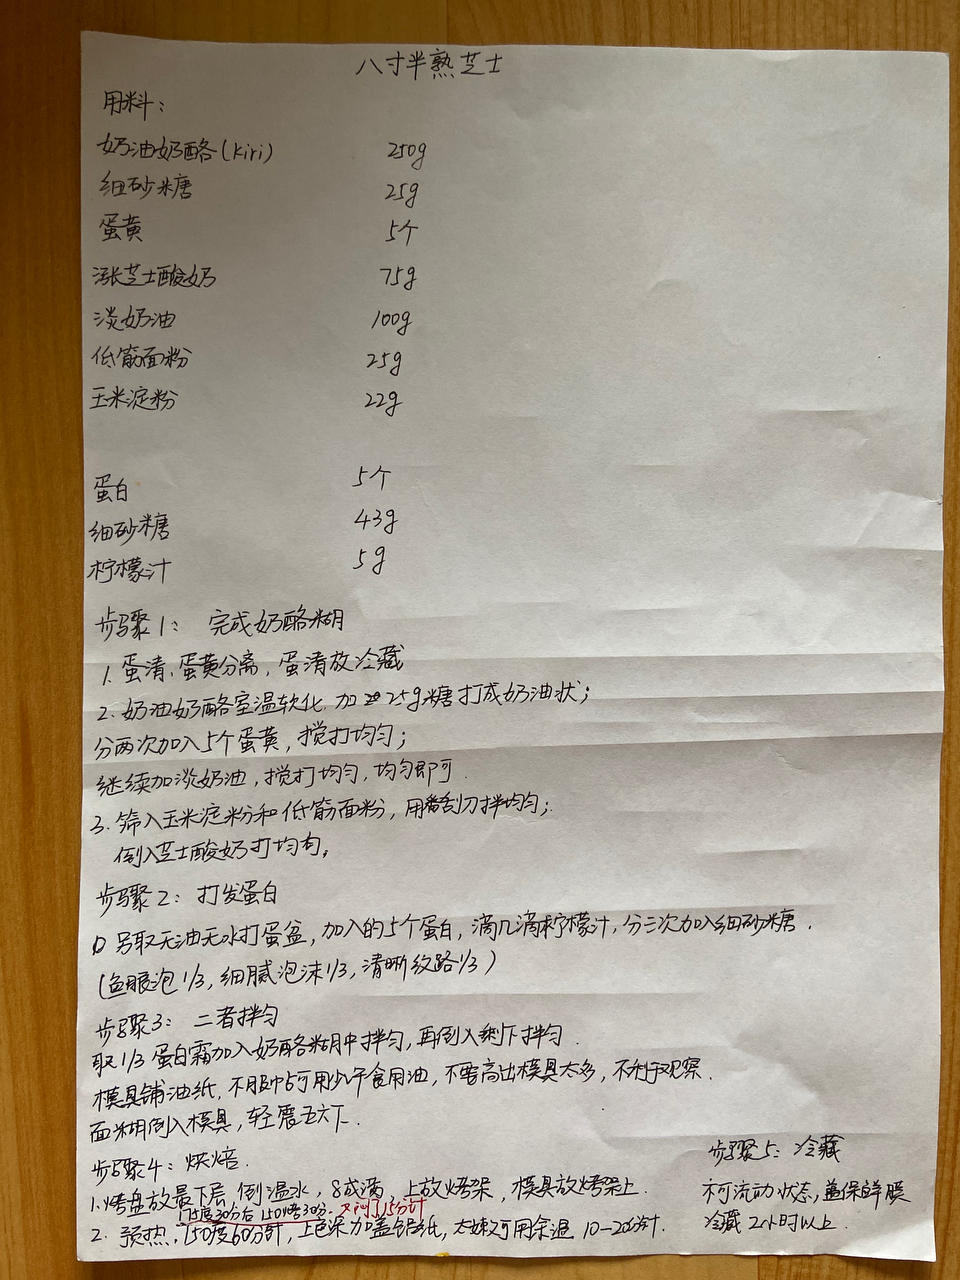 八寸半熟芝士
用料：
奶油奶酪(kiri) 250g
细砂糖 25g
蛋黄 5个
涨芝士酸奶 75g
淡奶油 100g
低筋面粉 25g
玉米淀粉 22g
蛋白 5个
细砂糖 43g
柠檬汁 5g
步骤1： 完成奶酪糊
1. 蛋清、蛋黄分离，蛋清放冷藏
2. 奶油奶酪室温软化，加25g糖打成奶油状；
分两次加入5个蛋黄，搅打均匀；
继续加淡奶油，搅打均匀，均匀即可．
3. 筛入玉米淀粉和低筋面粉，用刮刀拌均匀；
倒入芝士酸奶打均匀。
步骤2： 打发蛋白
另取无油无水打蛋盆，加入的5个蛋白，滴几滴柠檬汁，分三次加入细砂糖．
(鱼眼泡1/3，细腻泡沫1/3，清晰纹路1/3)
步骤3： 二者拌匀
取1/3蛋白霜加入奶酪糊中拌匀，再倒入剩下拌匀．
模具铺油纸，不服帖可用少许食用油，不要高出模具太多，不利于观察．
面糊倒入模具，轻震五六下．
步骤4：烘焙．
1. 烤盘放最下层，倒温水，8成满，上放烤架，模具放烤架上．
30分后 150烤30分．又闷了15分针
2. 预热，150度60分针，上色深加盖锡纸，太嫩可用余温 10-20分针．
步骤5：冷藏
不可流动状态，盖保鲜膜
冷藏2小时以上．